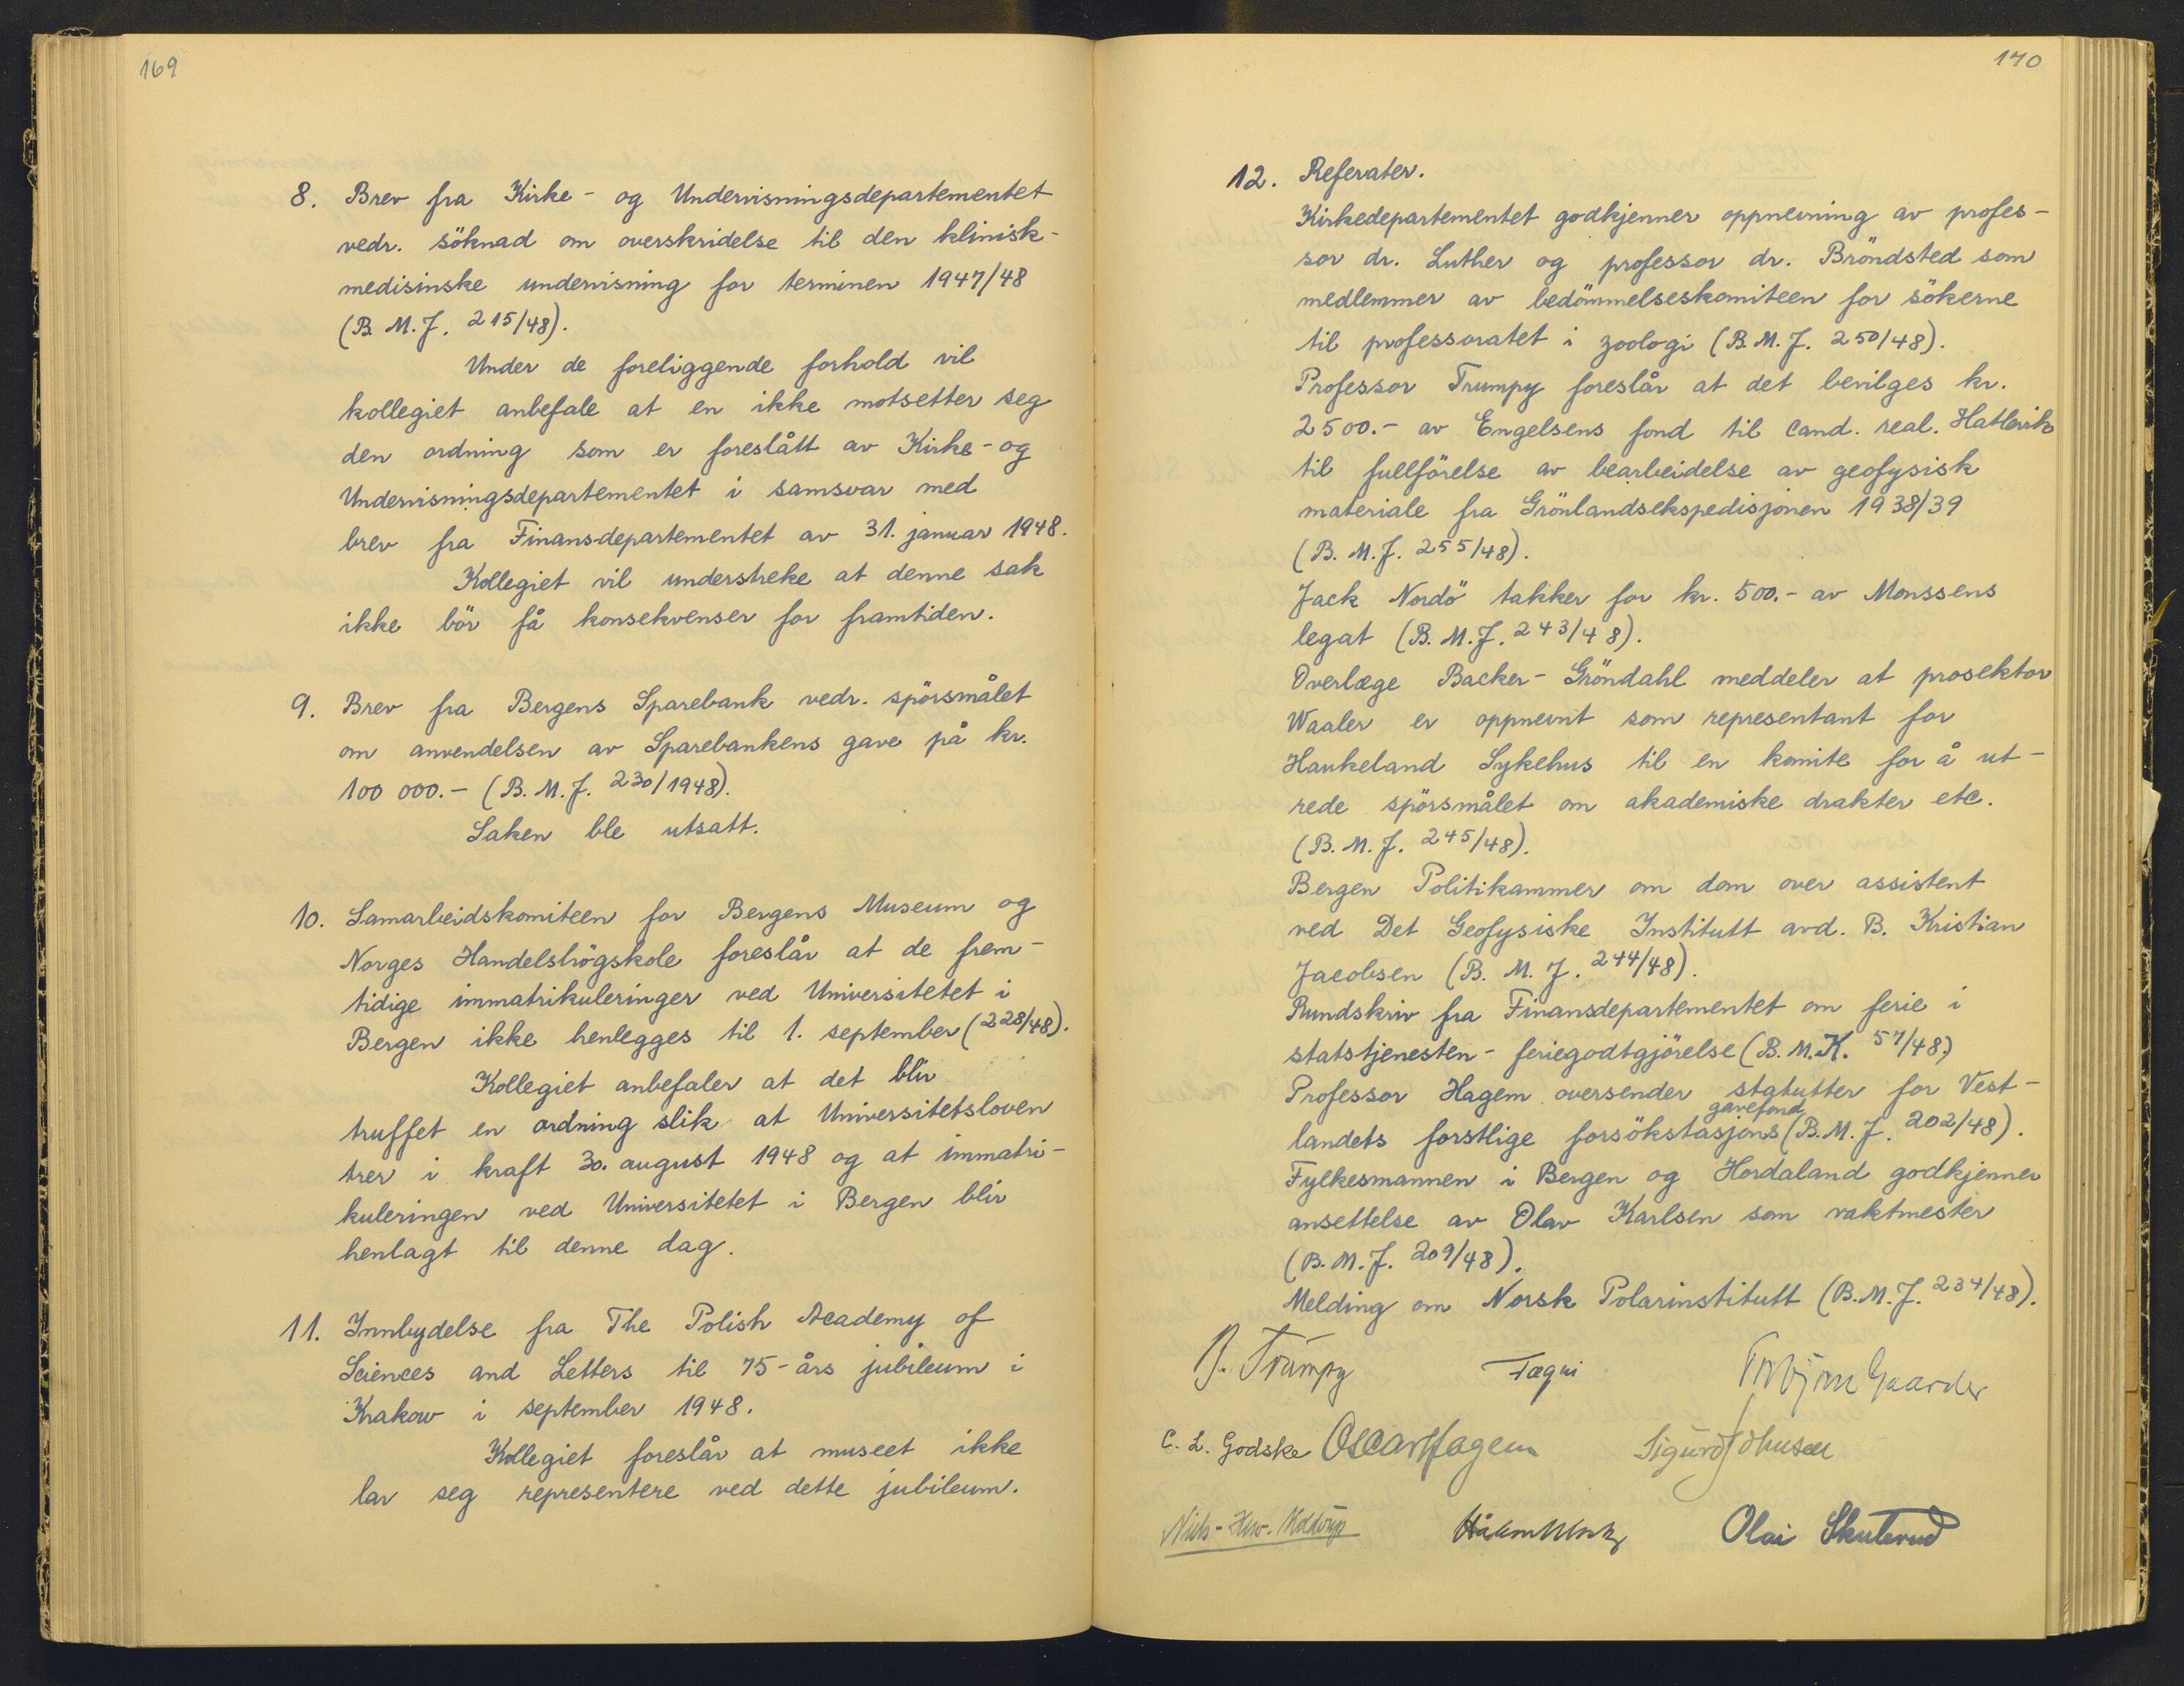 169
8. Brev fra Kirke- og Undervisningsdepartementet
vedr. söknad om overskridelse til den klinisk-
medisinske undervisning for terminen 1947/48
(B. M. J. 215/48).
Under de foreliggende forhold vil
kollegiet anbefale at en ikke motsetter seg
den ordning som er foreslått av Kirke- og
Undervisningsdepartementet i samsvar med
brev fra Finansdepartementet av 31. januar 1948.
Kollegiet vil understreke at denne sak
ikke bör få konsekvenser for framtiden.
9. Brev fra Bergens Sparebank vedr. spörsmålet
om anvendelsen av Sparebankens gave på kr.
100 000.- (B. M. J. 230/1948).
Saken ble utsatt.
10. Samarbeidskomiteen for Bergens Museum og
Norges Handelshögskole foreslår at de frem-
tidige immatrikuleringer ved Universitetet i
Bergen ikke henlegges til 1. september (228/48).
Kollegiet anbefaler at det blir
truffet en ordning slik at Universitetsloven
trer i kraft 30. august 1948 og at immatri-
kuleringen ved Universitetet i Bergen blir
henlagt til denne dag.
11. Innbydelse fra The Polish Academy of
Sciences and Letters til 75-års jubileum i
Krakow i september 1948.
Kollegiet foreslår at museet ikke
lar seg representere ved dette jubileum.
170
12. Referater.
Kirkedepartementet godkjenner oppnevning av profes-
sor dr. Luther og professor dr. Bröndsted som
medlemmer av bedömmelseskomiteen for sökerne
til professoratet i zoologi (B. M. J. 250/48).
Professor Trumpy foreslår at det bevilges kr.
2500.- av Engelsens fond til cand. real. Hatlevik
til fullförelse av bearbeidelse av geofysisk
materiale fra Grönlandsekspedisjonen 1938/39
(B. M. J. 255/48).
Jack Nordö takker for kr. 500.- av Monssens
legat (B. M. J. 243/48).
Overlæge Backer-Gröndahl meddeler at prosektor
Waaler er oppnevnt som representant for
Haukeland Sykehus til en komite for å ut-
rede spörsmålet om akademiske drakter etc.
(B. M. J. 245/48).
Bergen Politikammer om dom over assistent
ved Det Geofysiske Institutt avd. B. Kristian
Jacobsen (B. M. J. 244/48).
Rundskriv fra Finansdepartementet om ferie i
statstjenesten - feriegodtgjörelse (B. M. K. 57/48)
Professor Hagem oversender statutter for Vest-
gavefond
landets forstlige forsökstasjons (B. M. J. 202/48).
Fylkesmannen i Bergen og Hordaland godkjenner
ansettelse av Olav Karlsen som vaktmester
(B. M. J. 209/48).
Melding om Norsk Polarinstitutt (B. M. J. 234/48).
B. Trumpy Fægri Torbjörn Gaarder
C. L. Godske Oscar Hagem Sigurd Johnsen
Olai Skulerud